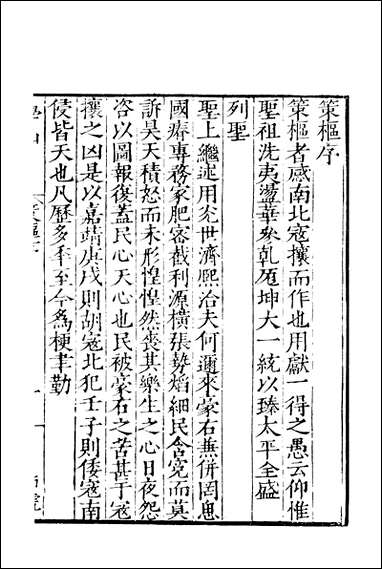 策樞序
策樞者感南北寇攘而作也用獻一得之愚云仰惟
聖祖洗夷盪華奠乾厎坤大一統以臻太平全盛
列聖
聖上繼述用尒世濟熙治夫何邇來豪右蕪併罔恩
國瘠專務家肥窑截利源橫張勢焰細民含寃而莫
訴昊天積怒而未形惶惶然喪其樂生之心日夜怨
咨以圖報復蓋民心天心也民被豪右之苦甚于寇
攘之凶是以嘉靖庚戌則胡寇北犯壬子則倭寇南
侵皆天也凡歷多秊至今爲梗聿勤